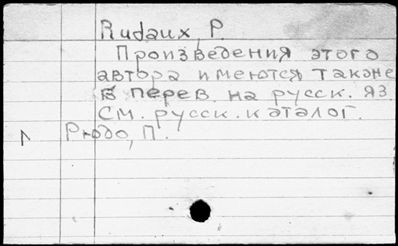 Rudaux, P.
Произведения этого
автора имеются также
в перев. на русск. яз.
См. русск. каталог.
Рюдо, П.